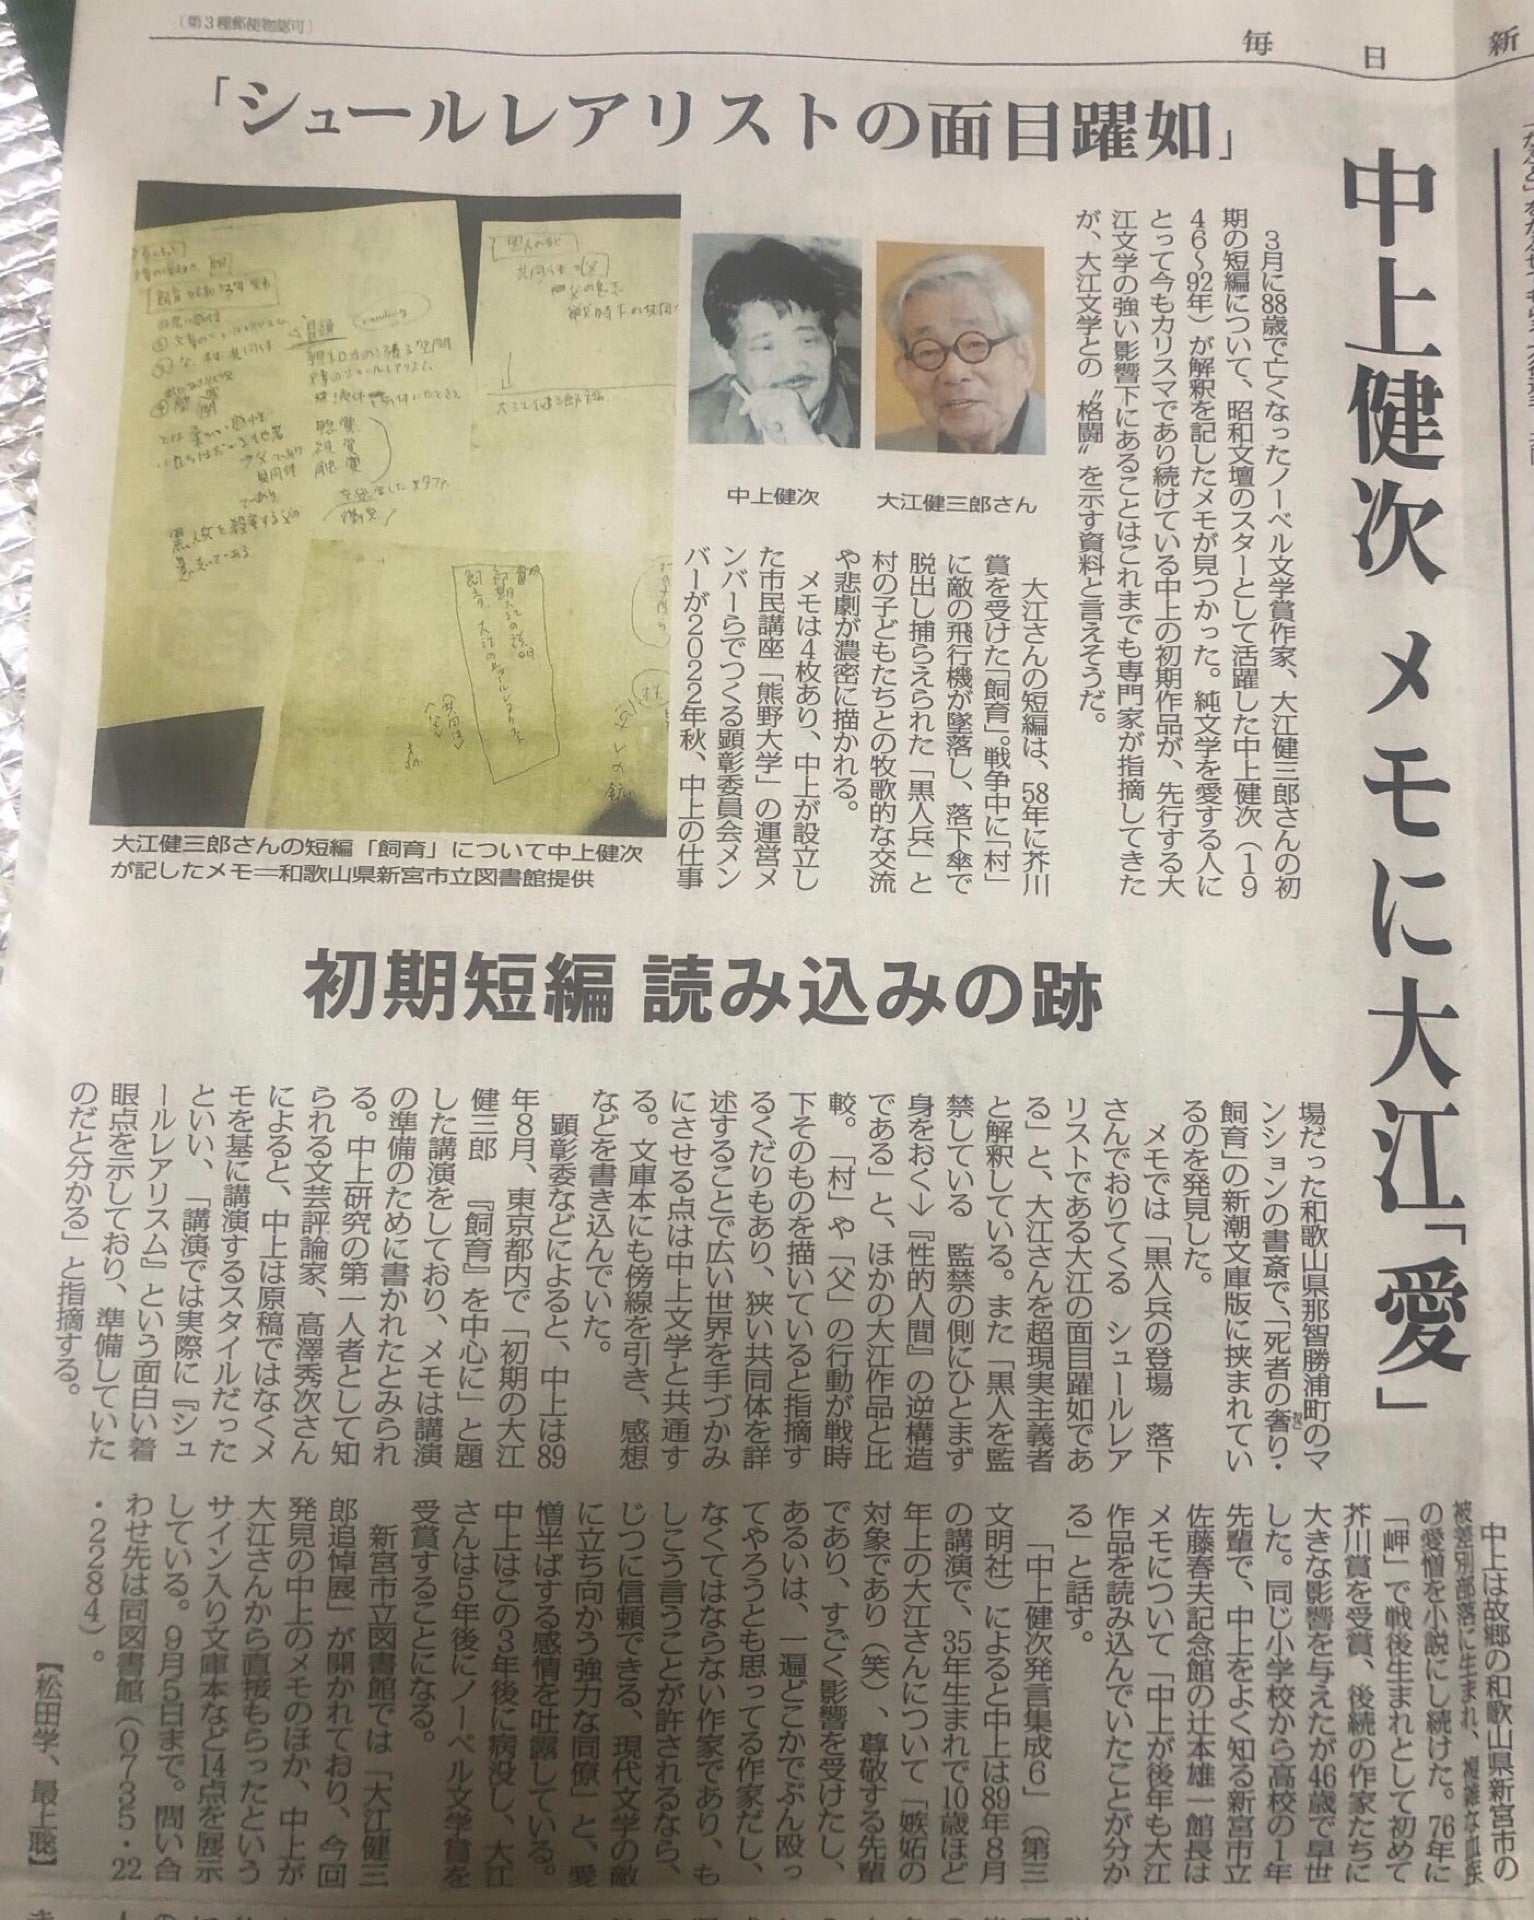 (第3種郵便物認可)
毎 日 新
中上健次 メモに大江「愛」
「シュールレアリストの面目躍如」
3月に88歳で亡くなったノーベル文学賞作家、大江健三郎さんの初
期の短編について、昭和文壇のスターとして活躍した中上健次（19
46～92年）が解釈を記したメモが見つかった。純文学を愛する人に
とって今もカリスマであり続けている中上の初期作品が、先行する大
江文学の強い影響下にあることはこれまでも専門家が指摘してきた
が、大江文学との〝格闘〟を示す資料と言えそうだ。
中上健次
大江健三郎さん
大江さんの短編は、58年に芥川
賞を受けた「飼育」。戦争中に「村」
に敵の飛行機が墜落し、落下傘で
脱出し捕らえられた「黒人兵」と
村の子どもたちとの牧歌的な交流
や悲劇が濃密に描かれる。
メモは4枚あり、中上が設立し
た市民講座「熊野大学」の運営メ
ンバーらでつくる顕彰委員会メン
バーが2022年秋、中上の仕事
大江健三郎さんの短編「飼育」について中上健次
が記したメモ＝和歌山県新宮市立図書館提供
初期短編 読み込みの跡
場だった和歌山県那智勝浦町のマ
ンションの書斎で、「死者の奢り・
飼育」の新潮文庫版に挟まれてい
るのを発見した。
メモでは「黒人兵の登場 落下
さんでおりてくる シュールレア
リストである大江の面目躍如であ
る」と、大江さんを超現実主義者
と解釈している。また「黒人を監
禁している 監禁の側にひとまず
身をおく→『性的人間』の逆構造
である」と、ほかの大江作品と比
較。「村」や「父」の行動が戦時
下そのものを描いていると指摘す
るくだりもあり、狭い共同体を詳
述することで広い世界を手づかみ
にさせる点は中上文学と共通す
る。文庫本にも傍線を引き、感想
などを書き込んでいた。
顕彰委などによると、中上は89
年8月、東京都内で「初期の大江
健三郎 『飼育』を中心に」と題
した講演をしており、メモは講演
の準備のために書かれたとみられ
る。中上研究の第一人者として知
られる文芸評論家、高澤秀次さん
によると、中上は原稿ではなくメ
モを基に講演するスタイルだった
といい、「講演では実際に『シュ
ールレアリスム』という面白い着
眼点を示しており、準備していた
のだと分かる」と指摘する。
中上は故郷の和歌山県新宮市の
被差別部落に生まれ、複雑な血族
の愛憎を小説にし続けた。76年に
「岬」で戦後生まれとして初めて
芥川賞を受賞、後続の作家たちに
大きな影響を与えたが46歳で早世
した。同じ小学校から高校の1年
先輩で、中上をよく知る新宮市立
佐藤春夫記念館の辻本雄一館長は
メモについて「中上が後年も大江
作品を読み込んでいたことが分か
る」と話す。
「中上健次発言集成6」（第三
文明社）によると中上は89年8月
の講演で、35年生まれで10歳ほど
年上の大江さんについて「嫉妬の
対象であり（笑）、尊敬する先輩
であり、すごく影響を受けたし、
あるいは、一遍どこかでぶん殴っ
てやろうとも思ってる作家だし、
なくてはならない作家であり、も
しこう言うことが許されるなら、
じつに信頼できる、現代文学の敵
に立ち向かう強力な同僚」と、愛
憎半ばする感情を吐露している。
中上はこの3年後に病没し、大江
さんは5年後にノーベル文学賞を
受賞することになる。
新宮市立図書館では「大江健三
郎追悼展」が開かれており、今回
発見の中上のメモのほか、中上が
大江さんから直接もらったという
サイン入り文庫本など14点を展示
している。9月5日まで。問い合
わせ先は同図書館（0735・22
・2284）。
【松田学、最上聡】